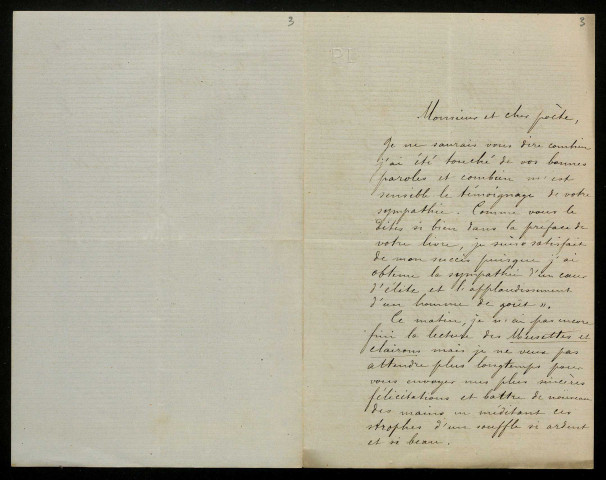 3
3
PL
Monsieur et cher poète,
Je ne saurais vous dire combien
j'ai été touché de vos bonnes
paroles et combien m'est
sensible le témoignage de votre
sympathie. Comme vous le
dites si bien dans la préface de
votre livre, je suis satisfait
de mon succès puisque j'ai
obtenu la sympathie d'un cœur
d'élite et l'applaudissement
d'un homme de goût ».
Ce matin, je n'ai pas encore
fini la lecture des Musettes et
clairons mais je ne veux pas
attendre plus longtemps pour
vous envoyer mes plus sincères
félicitations et battre de nouveau
des mains en méditant ces
strophes d'un souffle si ardent
et si beau.